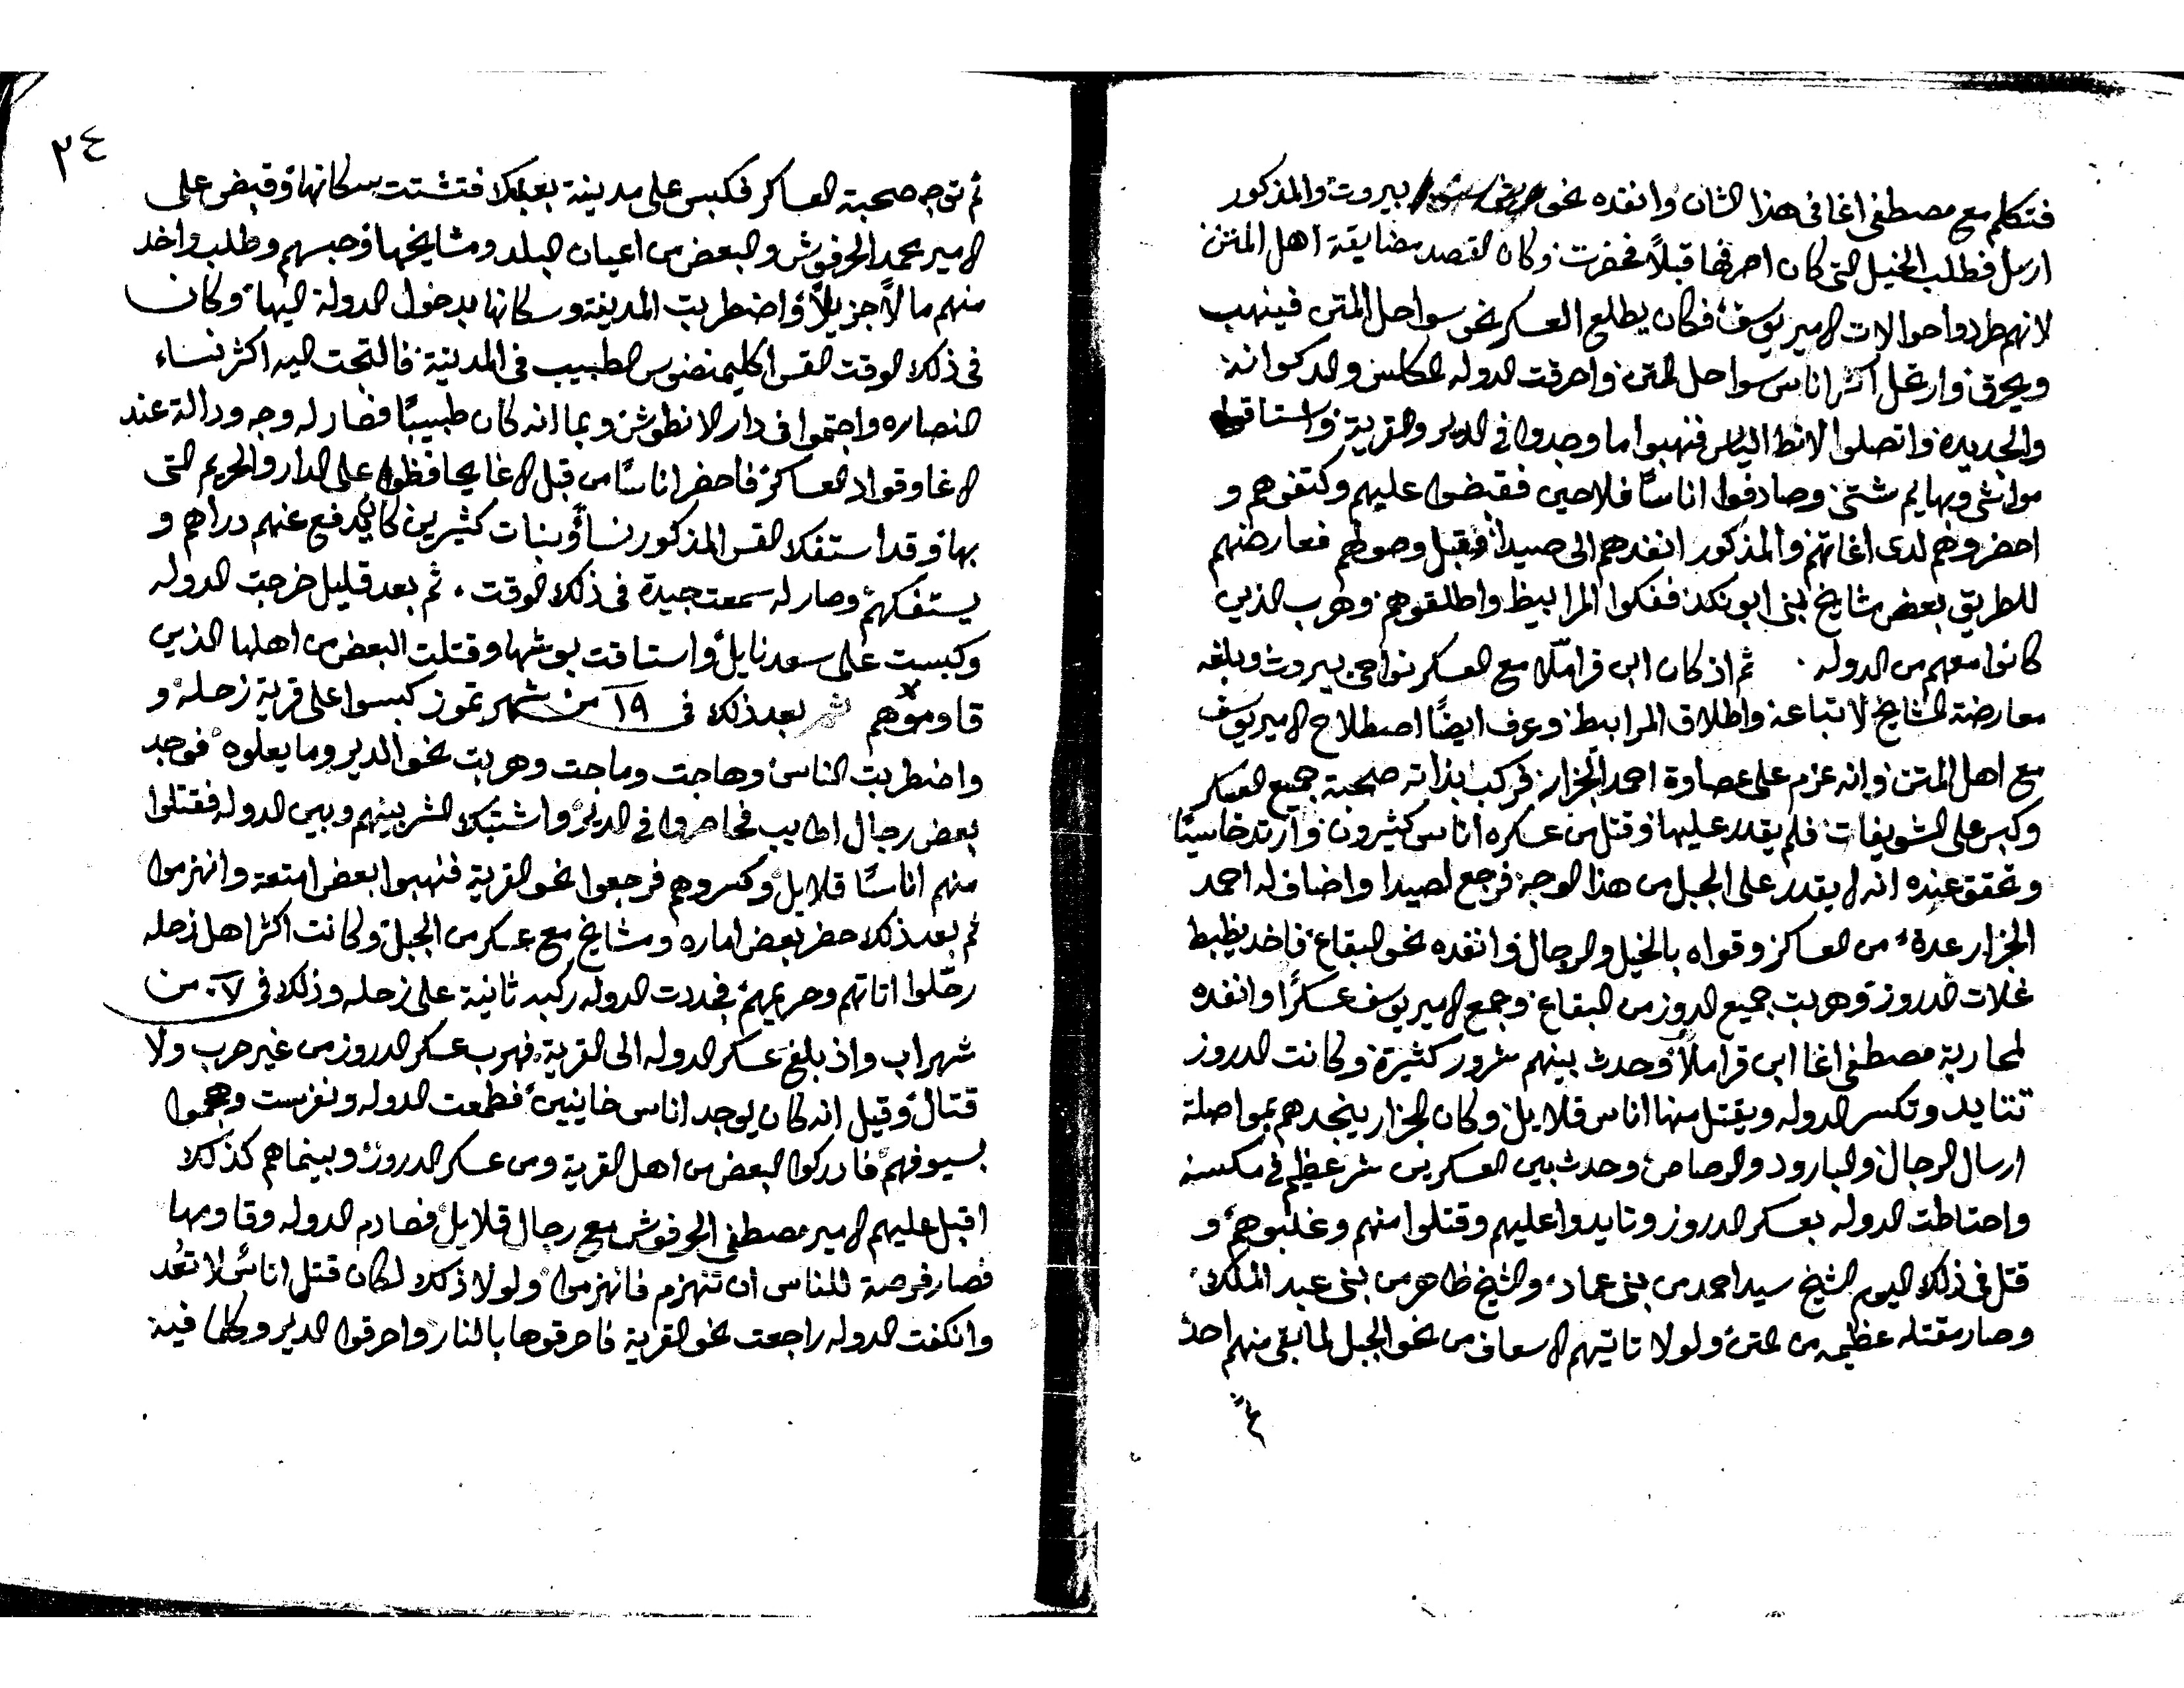 فتكلم مع مصطفى اغا في هذا الشان وانفده نحو بيروت والمذكور
ارسل فطلب الخيل التي كان اصرفها قبلاً فحضرت وكان القصد مضايقة اهل المتن
لانهم طردوا حوالات الامير يوسف فكان يطلع العسكر نحو سواحل المتن فينهب
ويحرق وارتحل اكثر اناس سواحل المتن واحرقت الدوله المكلس والدكوانه
والجديده واتصلوا لانط الياس فنهبوا ما وجدوا في الدير والقرية واستاقوا
مواشي وبهايم شتى وصادفوا اناسًا فلاحين فقبضوا عليهم وكتفوهم و
احضروهم لدى اغاتهم والمذكور انفدهم الى صيدا فقبل وصولهم فعارضهم
للطريق بعض مشايخ بني ابو نكد ففكوا المرابيط واطلقوهم وهرب الذين
كانوا معهم من الدوله . ثم اذ كان ابن قراملا مع العسكر نواحي بيروت وبلغه
معارضة المشايخ لاتباعه واطلاق المرابيط وعرف ايضًا اصطلاح الامير يوسف
مع اهل المتن وانه عزم على عصاوة احمد الجزار فركب بذاته صحبة جميع العسكر
وكبس على الشويفات فلم يقدر عليها وقتل من عسكره اناس كثيرون وارتد خاسيًا
وتحقق عنده انه لا يقدر على الجبل من هذا الوجه فرجع لصيدا واضاف له احمد
الجزار عدة من العساكر وقواه بالخيل والرجال وانفده نحو البقاع فاخد يظبط
غلات الدروز وهربت جميع الدروز من البقاع وجمع الامير يوسف عسكرًا وانفده
لمحاربة مصطفى اغا ابن قراملا وحدث بينهم شرور كثيرة وكانت الدروز
تتايد وتكسر الدوله ويقتل منها اناس قلايل وكان الجزار ينجدهم بمواصلة
ارسال الرجال والبارود والرصاص وحدث بين العسكرين شر عظيم في مكسه
واحتاطت الدوله بعسكر الدروز وتايدوا عليهم وقتلوا منهم وغلبوهم و
قتل في ذلك اليوم الشيخ سيد احمد من بني عماد والشيخ ظاهر من بني عبد الملك
وصار مقتله عظيمه من المتن ولولا تاتيهم الاسعاف من نحو الجبل لما بقي منهم احد
٢٤
ثم توجه صحبة العساكر فكبس على مدينة بعلبك فتشتت سكانها وقبض على
الامير محمد الحرفوش والبعض من اعيان البلد ومشايخها وحبسهم وطلب واخد
منهم مالاً جزيلاً واضطربت المدينة وسكانها بدخول الدولة اليها وكان
في ذلك الوقت القس اكليمنضوس الطبيب في المدينة فالتجت اليه اكثر نساء
النصاره واجتمعوا في دار الانطوش وبما انه كان طبيبًا فصار له وجه ودالة عند
الاغا وقواد العساكر فاحضر اناسًا من قبل الاغا يحافظوا على الدار والحريم التي
بها وقد استفك القس المذكور نساً وبنات كثيرين كان يدفع عنهم دراهم و
يستفكهم وصار له سمعت جيدة في ذلك الوقت . ثم بعد قليل خرجت الدوله
وكبست على سعدنايل واستاقت بوشها وقتلت البعض من اهلها الذين
قاوموهم ثم بعد ذلك في ١٩ من شهر تموز كبسوا على قرية زحلة و
واضطربت الناس وهاجت وماجت وهربت نحو الدير وما يعلوه فوجد
بعض رجال اطايب فحاصروا في الدير واشتبك الشر بينهم وبين الدوله فقتلوا
منهم اناسًا قلايل وكسروهم فرجعوا نحو القرية فنهبوا بعض امتعة وانهزموا
ثم بعد ذلك حضر بعض اماره ومشايخ مع عسكر من الجبل وكانت اكثر اهل زحله
رحّلوا اتاتهم وحريمهم فجددت الدوله ركبه ثانية على زحله وذلك في ٧ من
شهر اب واذ بلغ عسكر الدوله الى القرية فهرب عسكر الدروز من غير حرب ولا
قتال وقيل انه كان يوجد اناس خاينين فطمعت الدوله ونفرست وهجموا
بسيوفهم فادركوا البعض من اهل القرية ومن عسكر الدروز وبينما هم كذلك
اقبل عليهم الامير مصطفى الحرفوش مع رجال قلايل فصادم الدوله وقاومها
فصار فرصة للناس ان تنهزم فانهزموا ولولا ذلك لكان قتل اناس لا تعد
وانكفت الدوله راجعت نحو القرية فاحرقوها بالنار واحرقوا الدير وكلما فيه